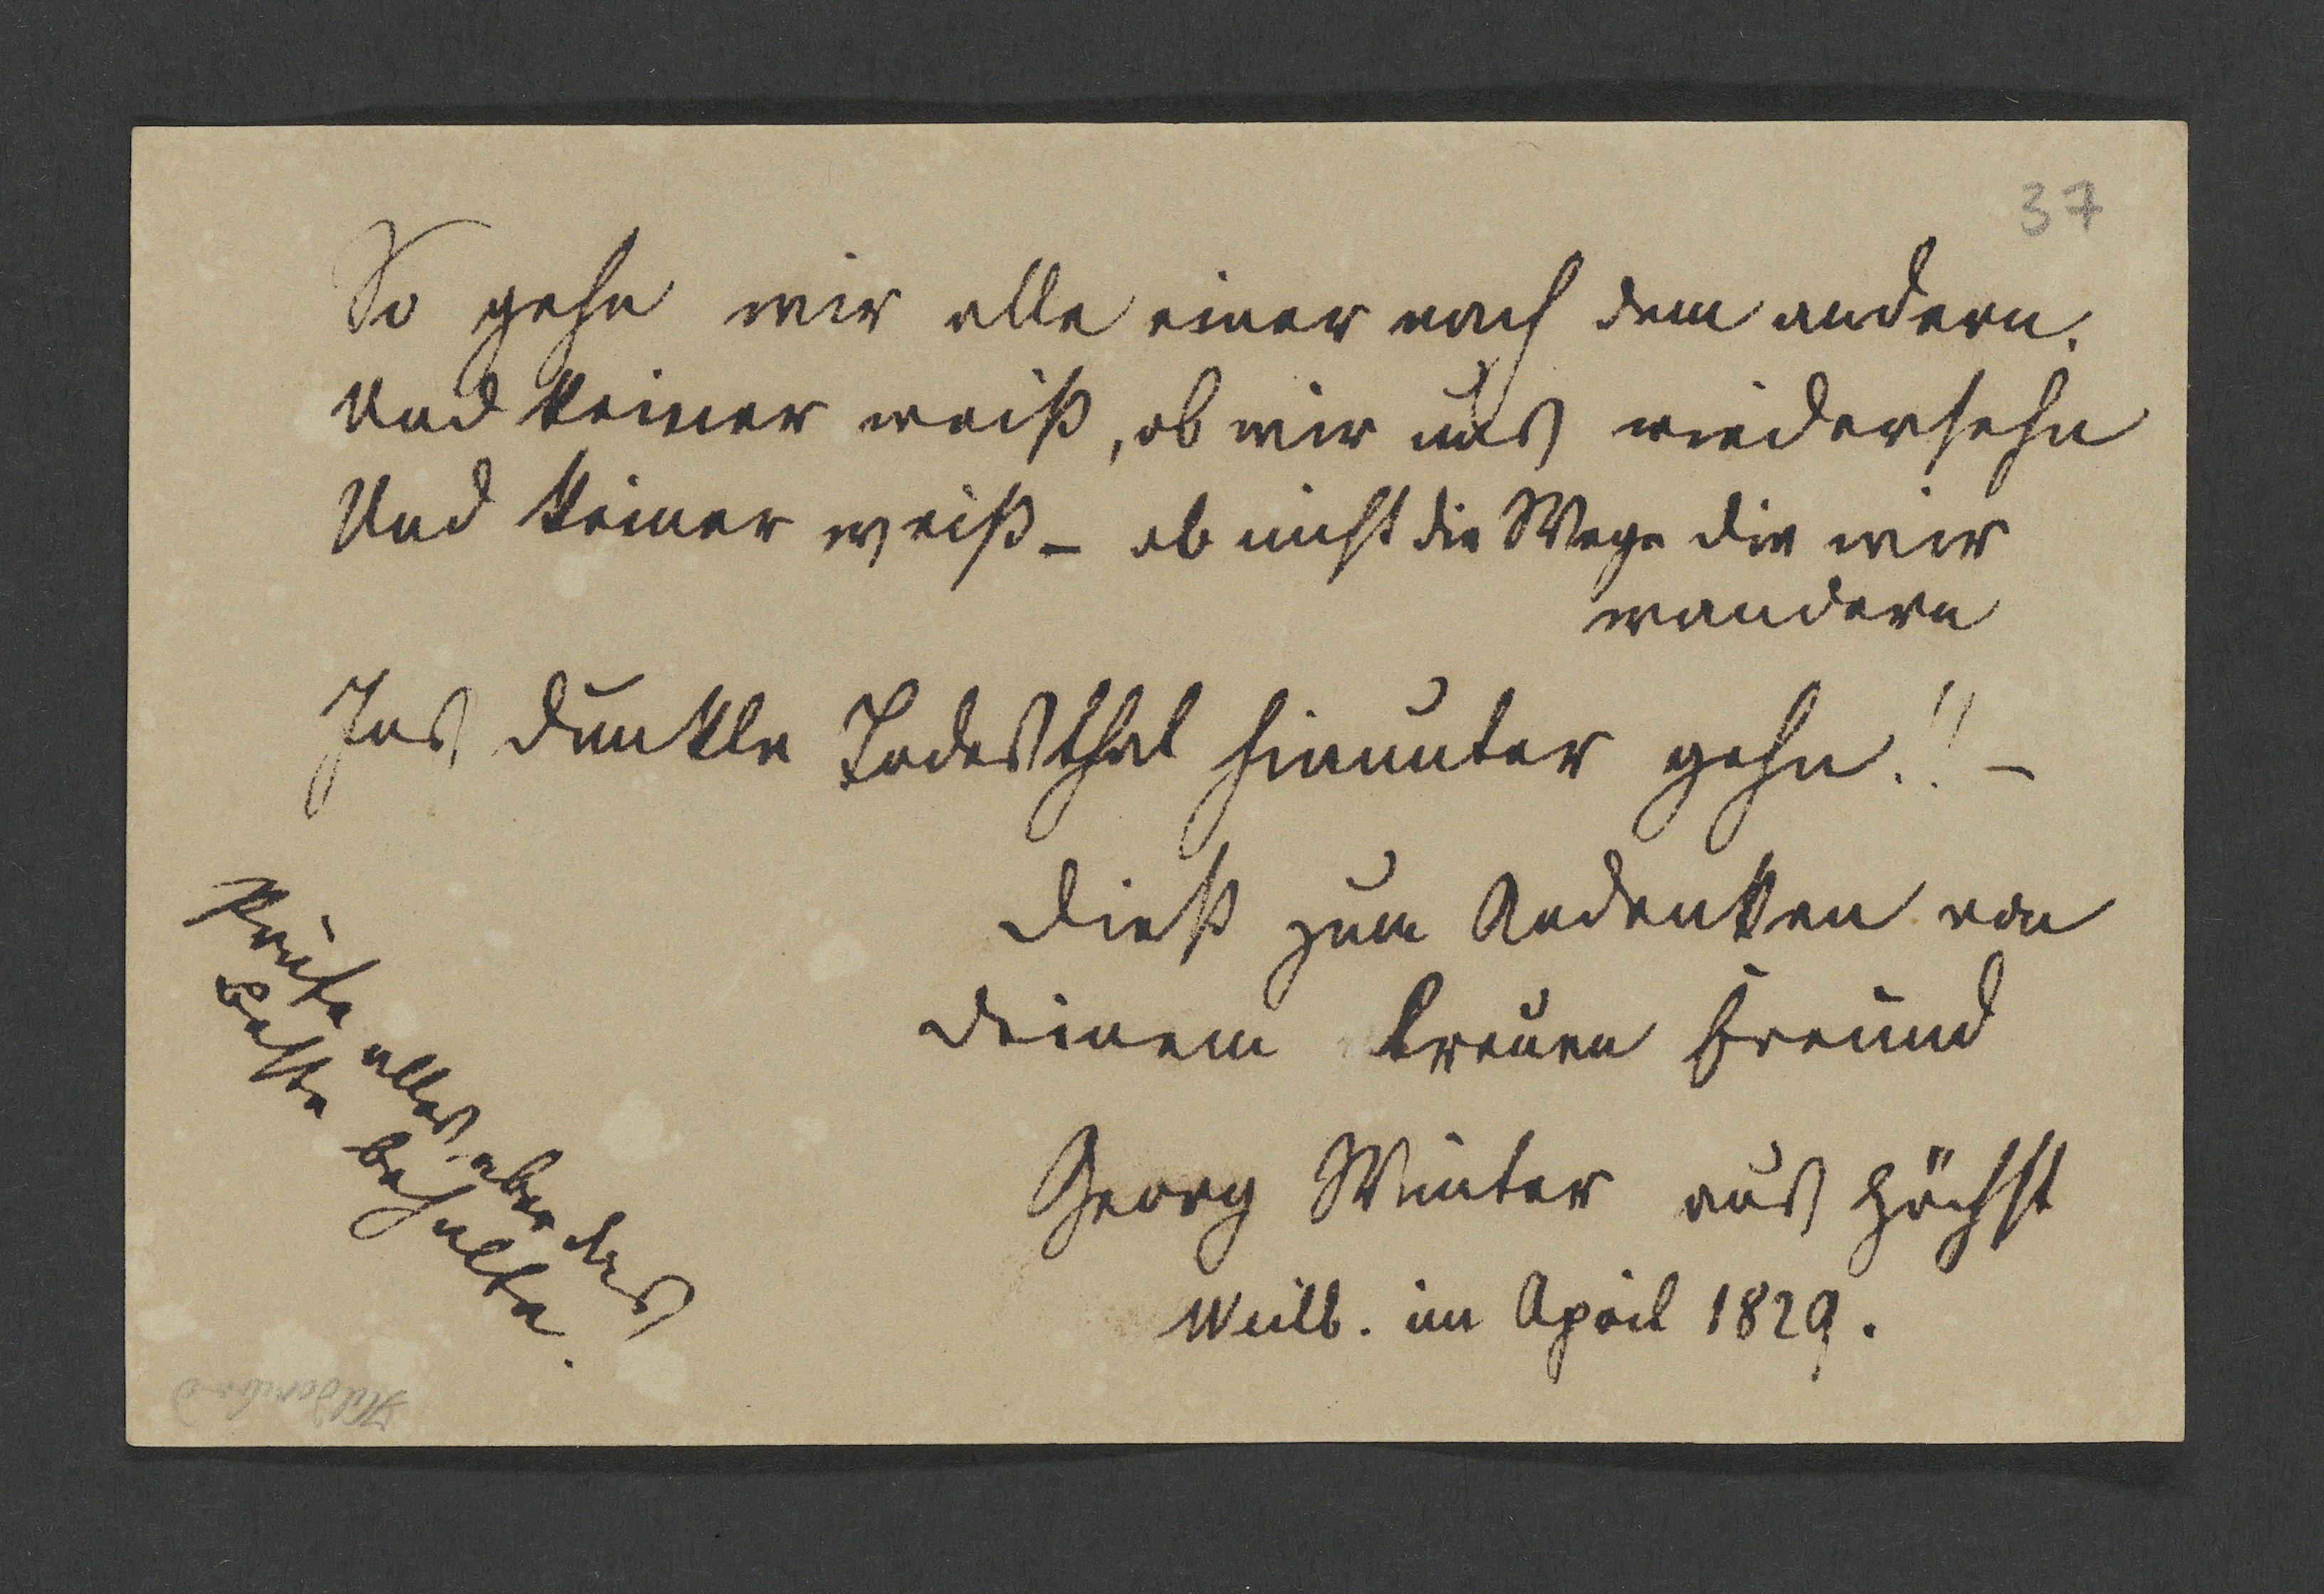 37
So gehn wir alle einer nach dem andern.
Und keiner weiß, ob wir uns wiedersehn
Und keiner weiß – ob nicht die Wege die wir
wandern
Ins dunkle Todesthal hinunter gehn!! –
Dieß zum Andenken von
deinem treuen Freund
Georg Winter aus Höchst
Weilb. im April 1829.
Prüfe alles, aber das
Beste behalte.